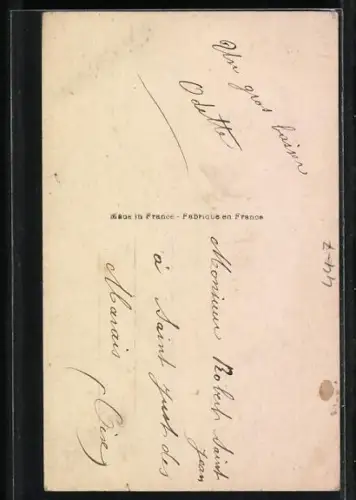 Un gros baiser
Odette
Made in France - Fabriqué en France
Monsieur Robert Saint
Jean
à Saint Just des
Marais (Oise)
44-7